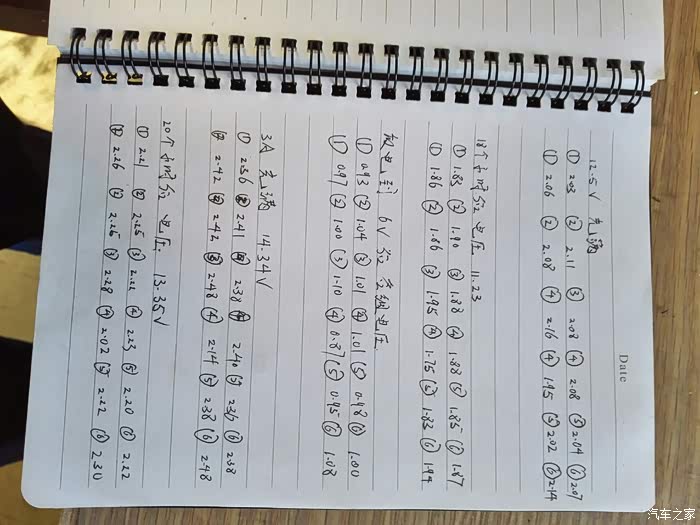 Date
12.5V 充满
① 2.03 ② 2.11 ③ 2.08 ④ 2.08 ⑤ 2.04 ⑥ 2.07
① 2.06 ② 2.08 ④ 2.16 ④ 1.95 ⑤ 2.02 ⑥ 2.14
18个小时后 电压 11.23
① 1.83 ② 1.90 ③ 1.88 ④ 1.88 ⑤ 1.85 ⑥ 1.87
① 1.86 ② 1.86 ③ 1.95 ④ 1.75 ⑤ 1.83 ⑥ 1.94
放电到 6V 后 各级电压
① 0.93 ② 1.04 ③ 1.01 ④ 1.01 ⑤ 0.98 ⑥ 1.00
① 0.97 ② 1.00 ③ 1.10 ④ 0.87 ⑤ 0.95 ⑥ 1.08
3A 充满 14.34V
① 2.36 ② 2.41 ③ 2.38 ④ 2.40 ⑤ 2.36 ⑥ 2.38
① 2.42 ② 2.42 ③ 2.48 ④ 2.14 ⑤ 2.38 ⑥ 2.48
20个小时后 电压 13.35V
① 2.21 ② 2.25 ③ 2.22 ④ 2.23 ⑤ 2.20 ⑥ 2.22
① 2.26 ② 2.25 ③ 2.28 ④ 2.02 ⑤ 2.22 ⑥ 2.30
汽车之家